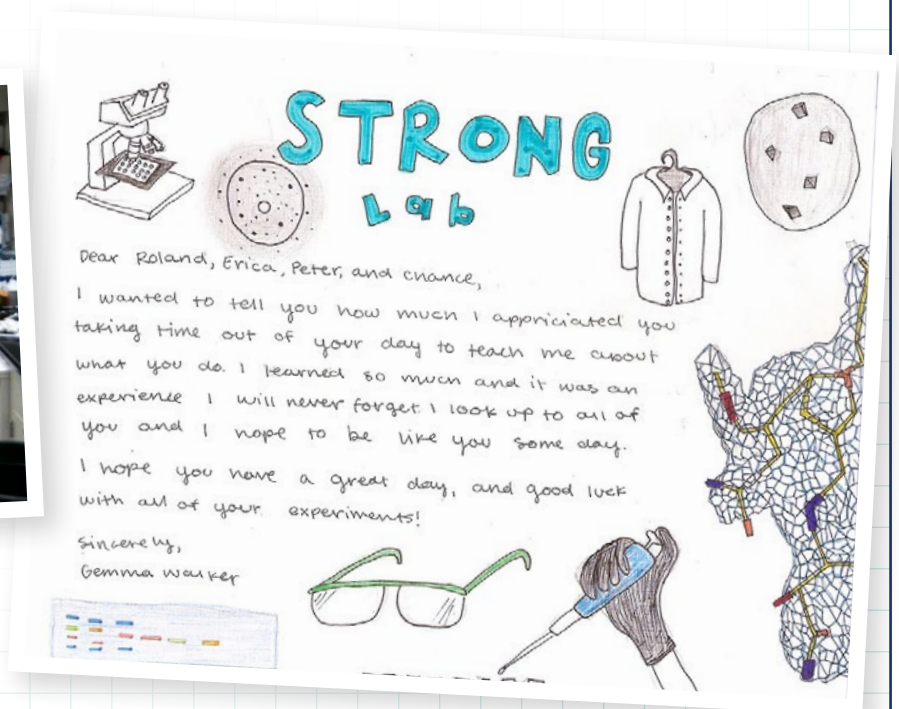 STRONG
Lab
Dear Roland, Erica, Peter, and Chance,
I wanted to tell you how much I appriciated you
taking time out of your day to teach me about
what you do. I learned so much and it was an
experience I will never forget. I look up to all of
you and I hope to be like you some day.
I hope you have a great day, and good luck
with all of your experiments!
Sincerely,
Gemma Walker